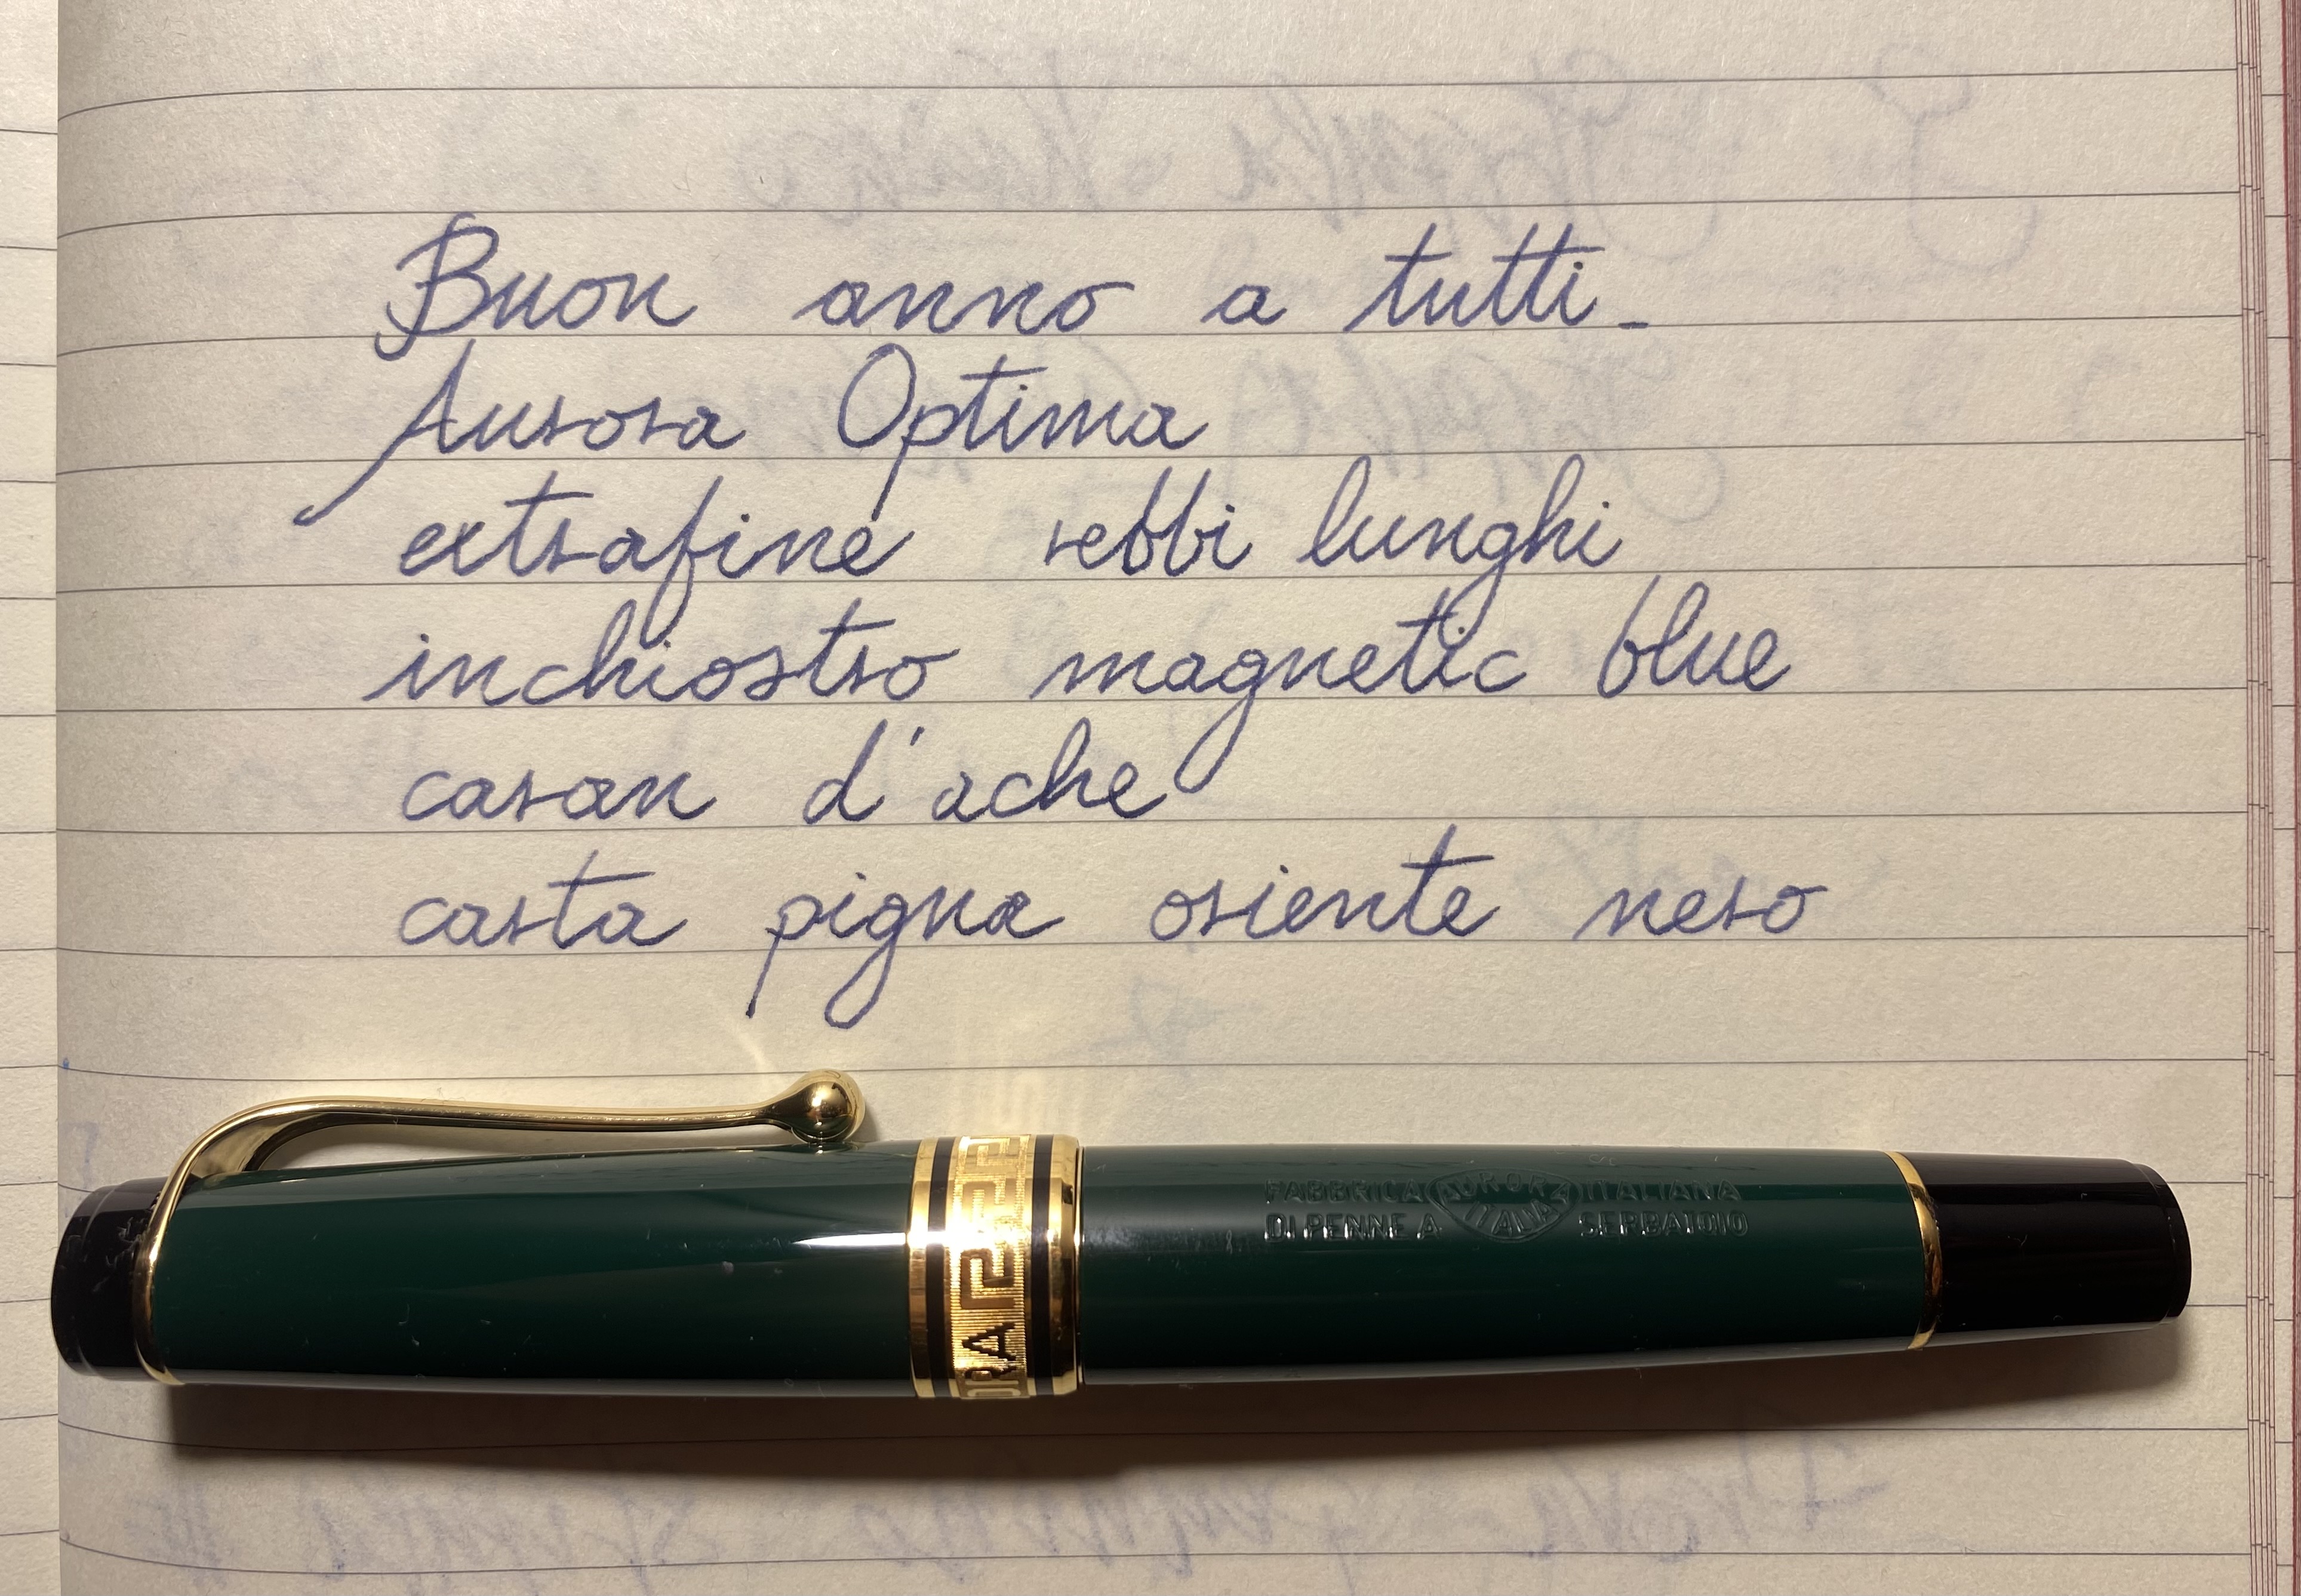 Buon anno a tutti.
Aurora Optima
extrafine rebbi lunghi
inchiostro magnetic blue
caran d'ache
carta pigna oriente nero
FABBRICA AURORA ITALIANA
DI PENNE A ITALIA SERBATOIO
ORA